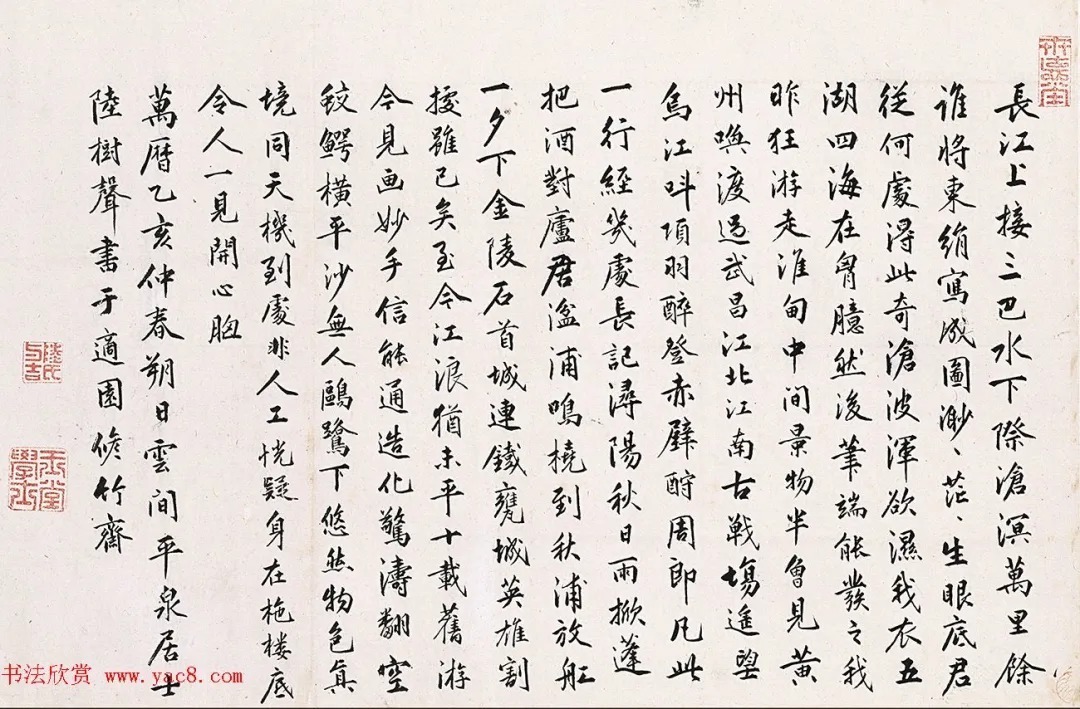 長江上接三巴水下際滄溟萬里餘
誰將東絹寫成圖渺、茫、生眼底君
從何處得此奇滄波渾欲濕我衣五
湖四海在胷臆然後筆端能發之我
昨狂游走淮甸中間景物半曾見黄
州喚渡過武昌江北江南古戦塲遥望
烏江呌項羽醉登赤壁酹周郎凡此
一行經幾處長記潯陽秋日雨掀蓬
把酒對廬君湓浦鳴橈到秋浦放舡
一夕下金陵石首城連鐵甕城英雄割
據雖已矣至今江浪猶未平十載舊游
今見画妙手信能通造化驚濤翻空
鮫鰐橫平沙無人鷗鷺下悠然物色真
境同天機到處非人工恍疑身在柂楼底
令人一見開心胸
萬曆乙亥仲春朔日雲間平泉居士
陸樹聲書于適園脩竹齋
陸氏与吉
玉堂學士
书法欣赏 www.yac8.com